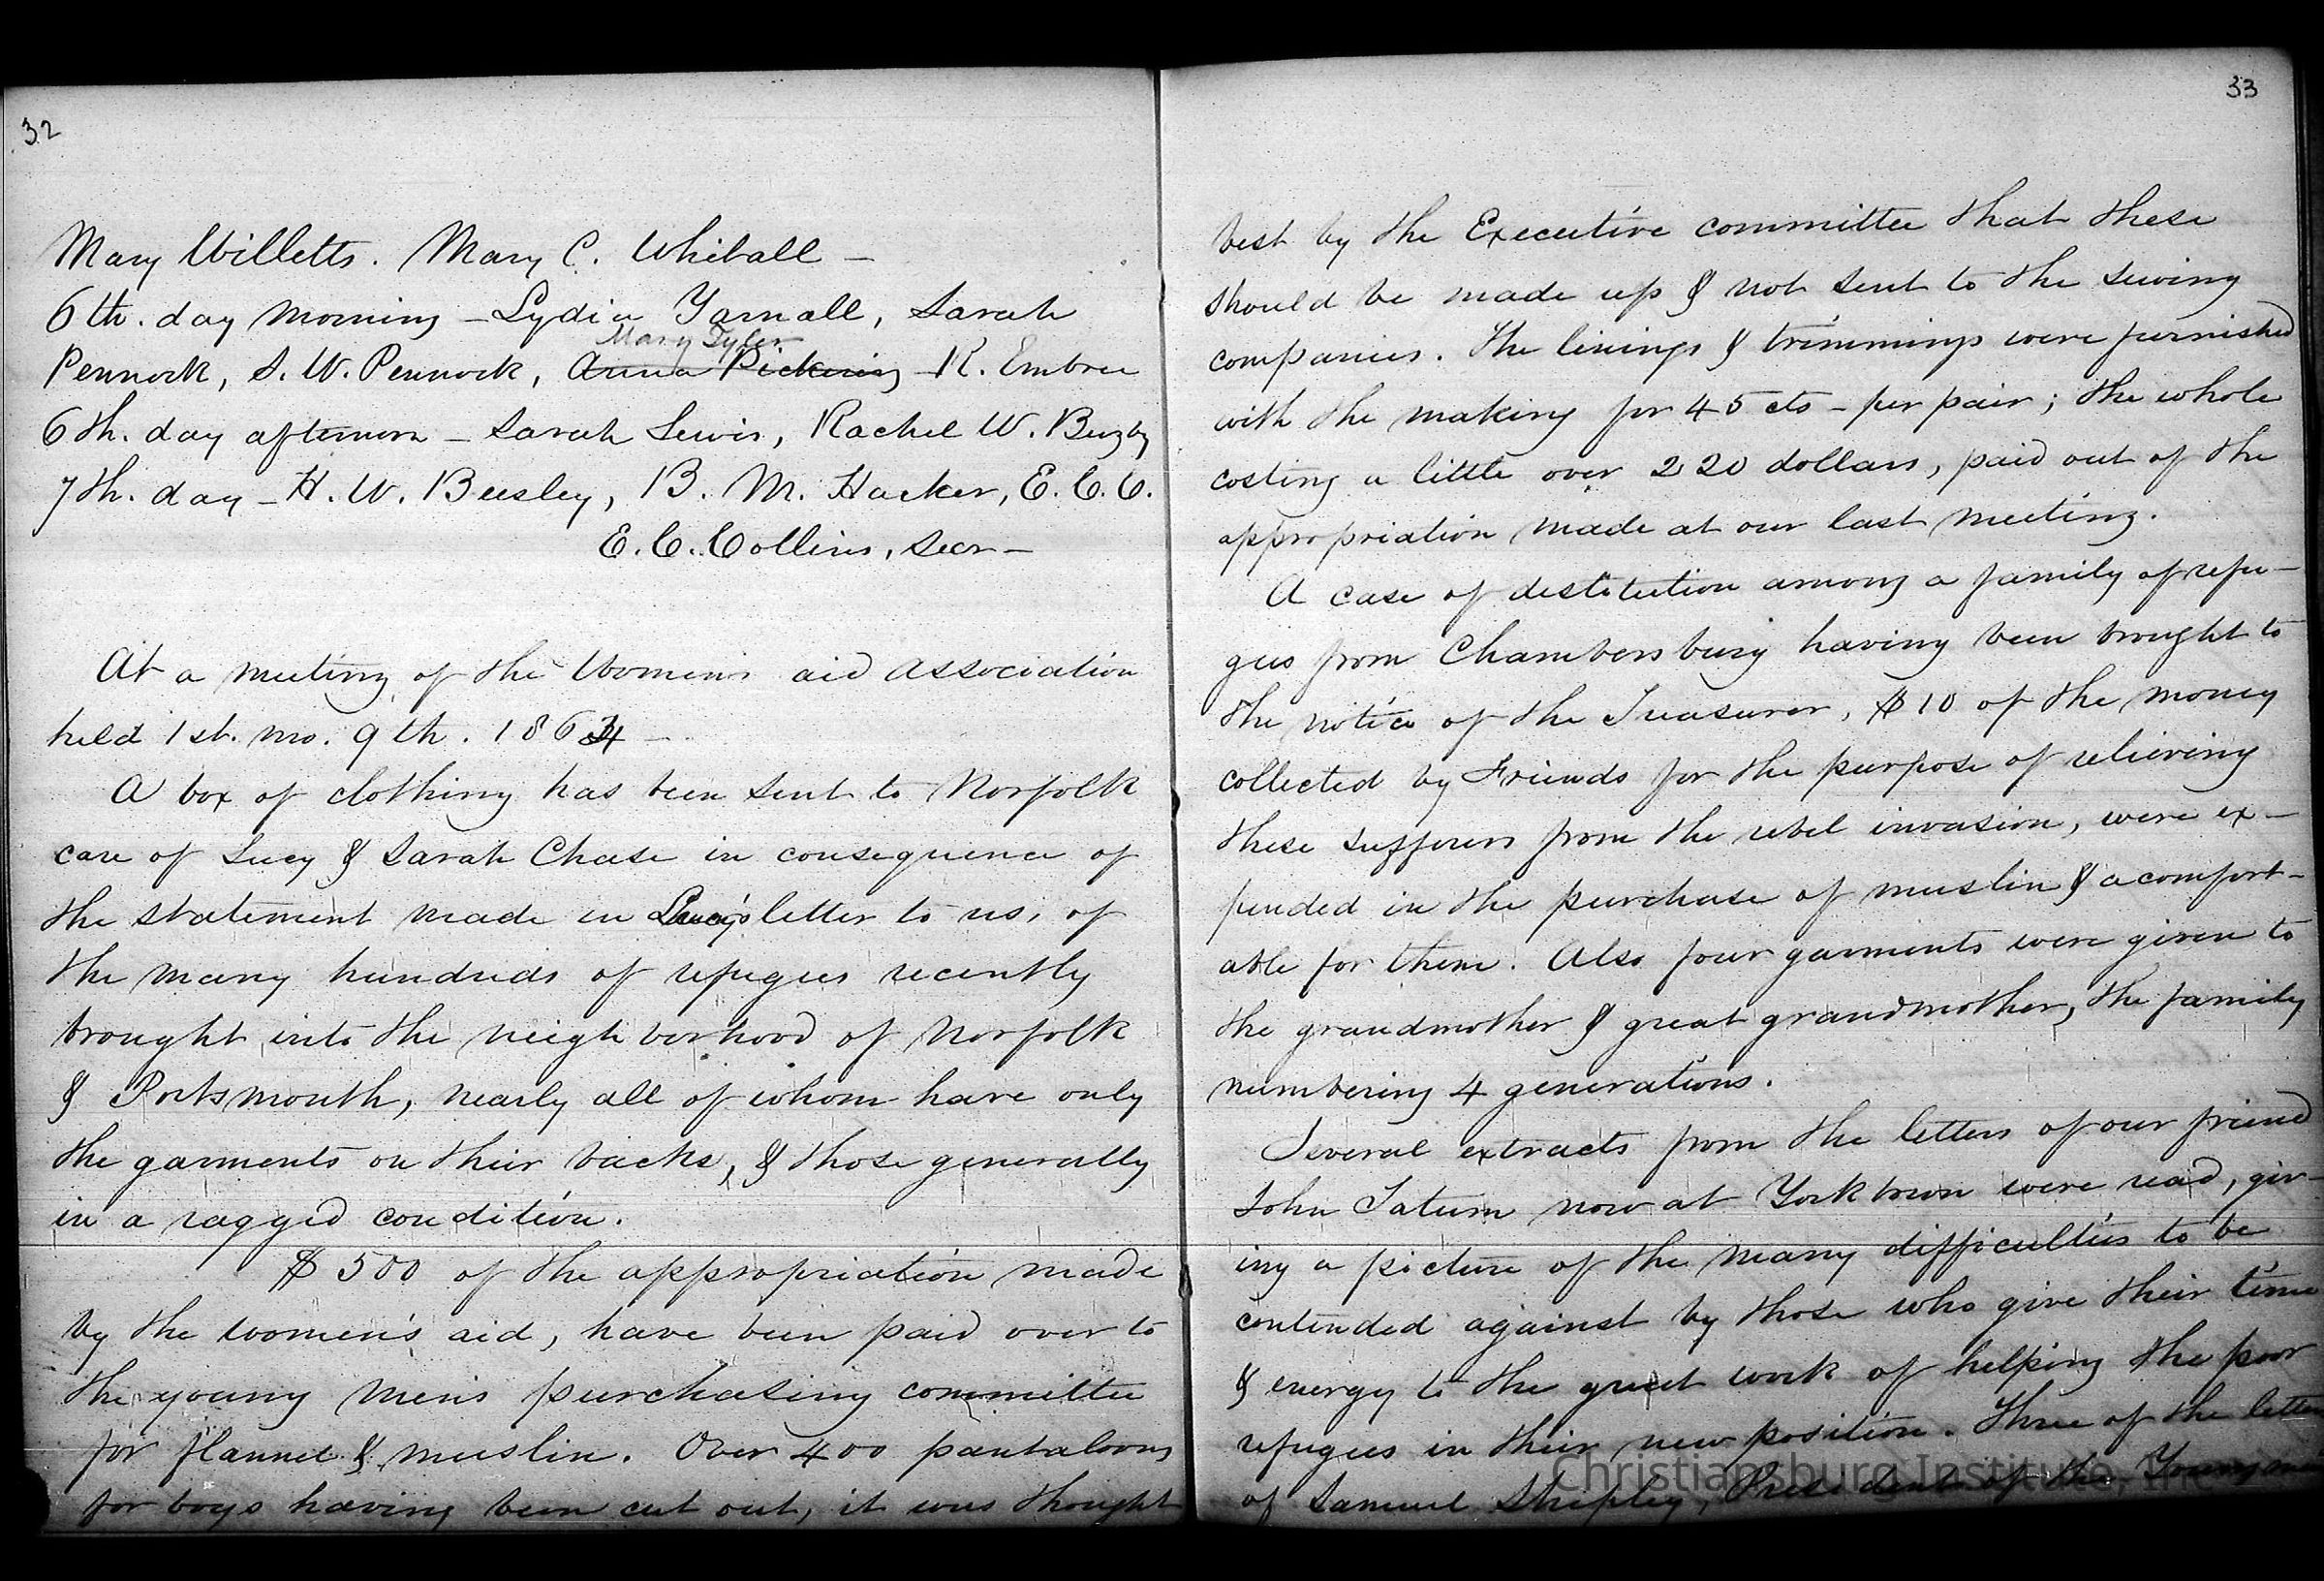 32
Mary Willetts. Mary C. Whitall –
6th. day morning – Lydia Yarnall, Sarah
Mary Tyler
Pennock, S. W. Pennock, Anna Pickering – R. Embree
6th. day afternoon – Sarah Lewis, Rachel W. Buzby
7th. day – H. W. Beesley, B. M. Hacker, E. C. C.
E. C. Collins, Secr –
At a meeting of the Women's aid association
held 1st. mo. 9th. 1864 –
A box of clothing has been sent to Norfolk
care of Lucy & Sarah Chase in consequence of
the statement made in Lucy's letter to us, of
the many hundreds of refugees recently
brought into the neighborhood of Norfolk
& Portsmouth, nearly all of whom have only
the garments on their backs, & those generally
in a ragged condition.
$500 of the appropriation made
by the women's aid, have been paid over to
the young men's purchasing committee
for flannel & muslin. Over 400 pantaloons
for boys having been cut out, it was thought
33
best by the Executive committee that these
should be made up & not sent to the sewing
companies. The linings & trimmings were furnished
with the making for 45 cts – per pair; the whole
costing a little over 220 dollars, paid out of the
appropriation made at our last meeting.
A case of destitution among a family of refu–
gees from Chambersburg having been brought to
the notice of the Treasurer, $10 of the money
collected by Friends for the purpose of relieving
these sufferers from the rebel invasion, were ex–
pended in the purchase of muslin & a comfort–
able for them. Also four garments were given to
the grandmother & great grandmother, the family
numbering 4 generations.
Several extracts from the letters of our friend
John Tatum now at Yorktown were read, giv–
ing a picture of the many difficulties to be
contended against by those who give their time
& energy to the great work of helping the poor
refugees in their new position. Three of the letters
of Samuel Shipley, President of the Young men
Christiansburg Institute, Inc